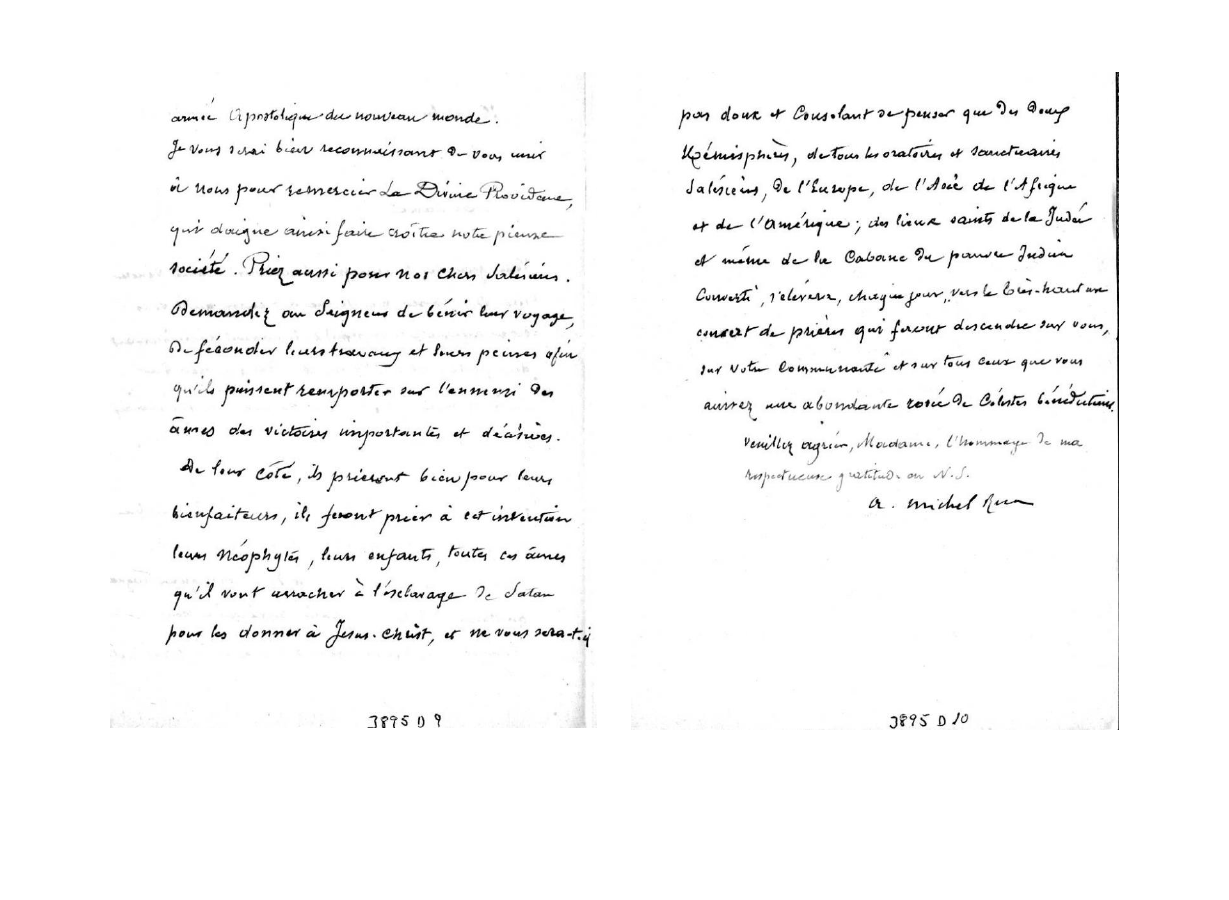 armée Apostolique du nouveau monde.
Je vous serai bien reconnaissant de vous unir
à nous pour remercier La Divine Providence,
qui daigne ainsi faire croître notre pieuse
société. Priez aussi pour nos chers Salésiens.
Demandez au Seigneur de bénir leur voyage,
de féconder leurs travaux et leurs peines afin
qu'ils puissent remporter sur l'ennemi des
âmes des victoires importantes et décisives.
De leur côté, ils prieront bien pour leurs
bienfaiteurs, ils feront prier à cet intention
leurs Néophytes, leurs enfants, toutes ces âmes
qu'il vont arracher à l'esclavage de Satan
pour les donner à Jesus-Christ, et ne vous sera-t-il
3895 D 9
pas doux et Consolant de penser que des Deux
Hémisphères, de tous les oratoires et sanctuaires
Salésiens, de l'Europe, de l'Asie de l'Afrique
et de l'Amérique ; des lieux saints de la Judée
et même de la Cabane du pauvre Indien
Converti, s'élèvera, chaque jour, vers le Très-haut un
concert de prières qui feront descendre sur vous,
sur votre Communauté et sur tous ceux que vous
aimez une abondante rosée de Célestes bénédictions.
Veuillez agréer, Madame, l'hommage de ma
respectueuse gratitude en N.S.
a. Michel Rua
3895 D 10